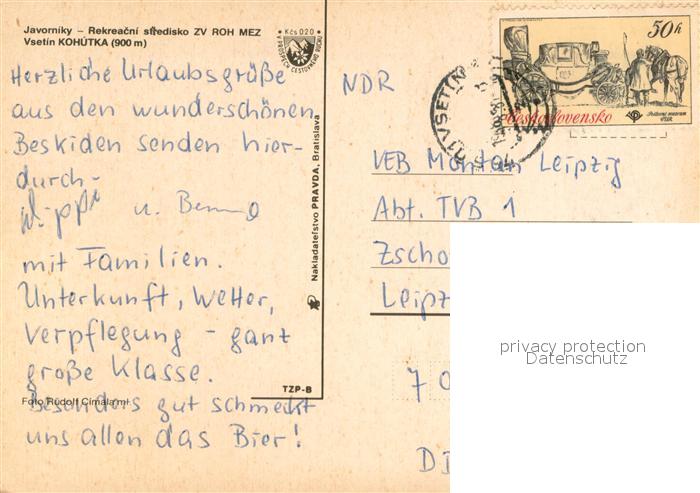 Javorníky – Rekreační středisko ZV ROH MEZ
Vsetín KOHÚTKA (900 m)
Kčs 0,20
Herzliche Urlaubsgrüße
aus den wunderschönen
Beskiden senden hier-
durch -
u.
mit Familien.
Unterkunft, Wetter,
Verpflegung - ganz
große Klasse.
Besonders gut schmeckt
uns allen das Bier!
Foto Rudolf
TZP-B
Nakladateľstvo PRAVDA, Bratislava
50h
Československo
Poštovní muzeum
VSETÍN
NDR
VEB Montan Leipzig
Abt. TVB 1
Zscho
Leipz
7 0
DD
privacy protection
Datenschutz